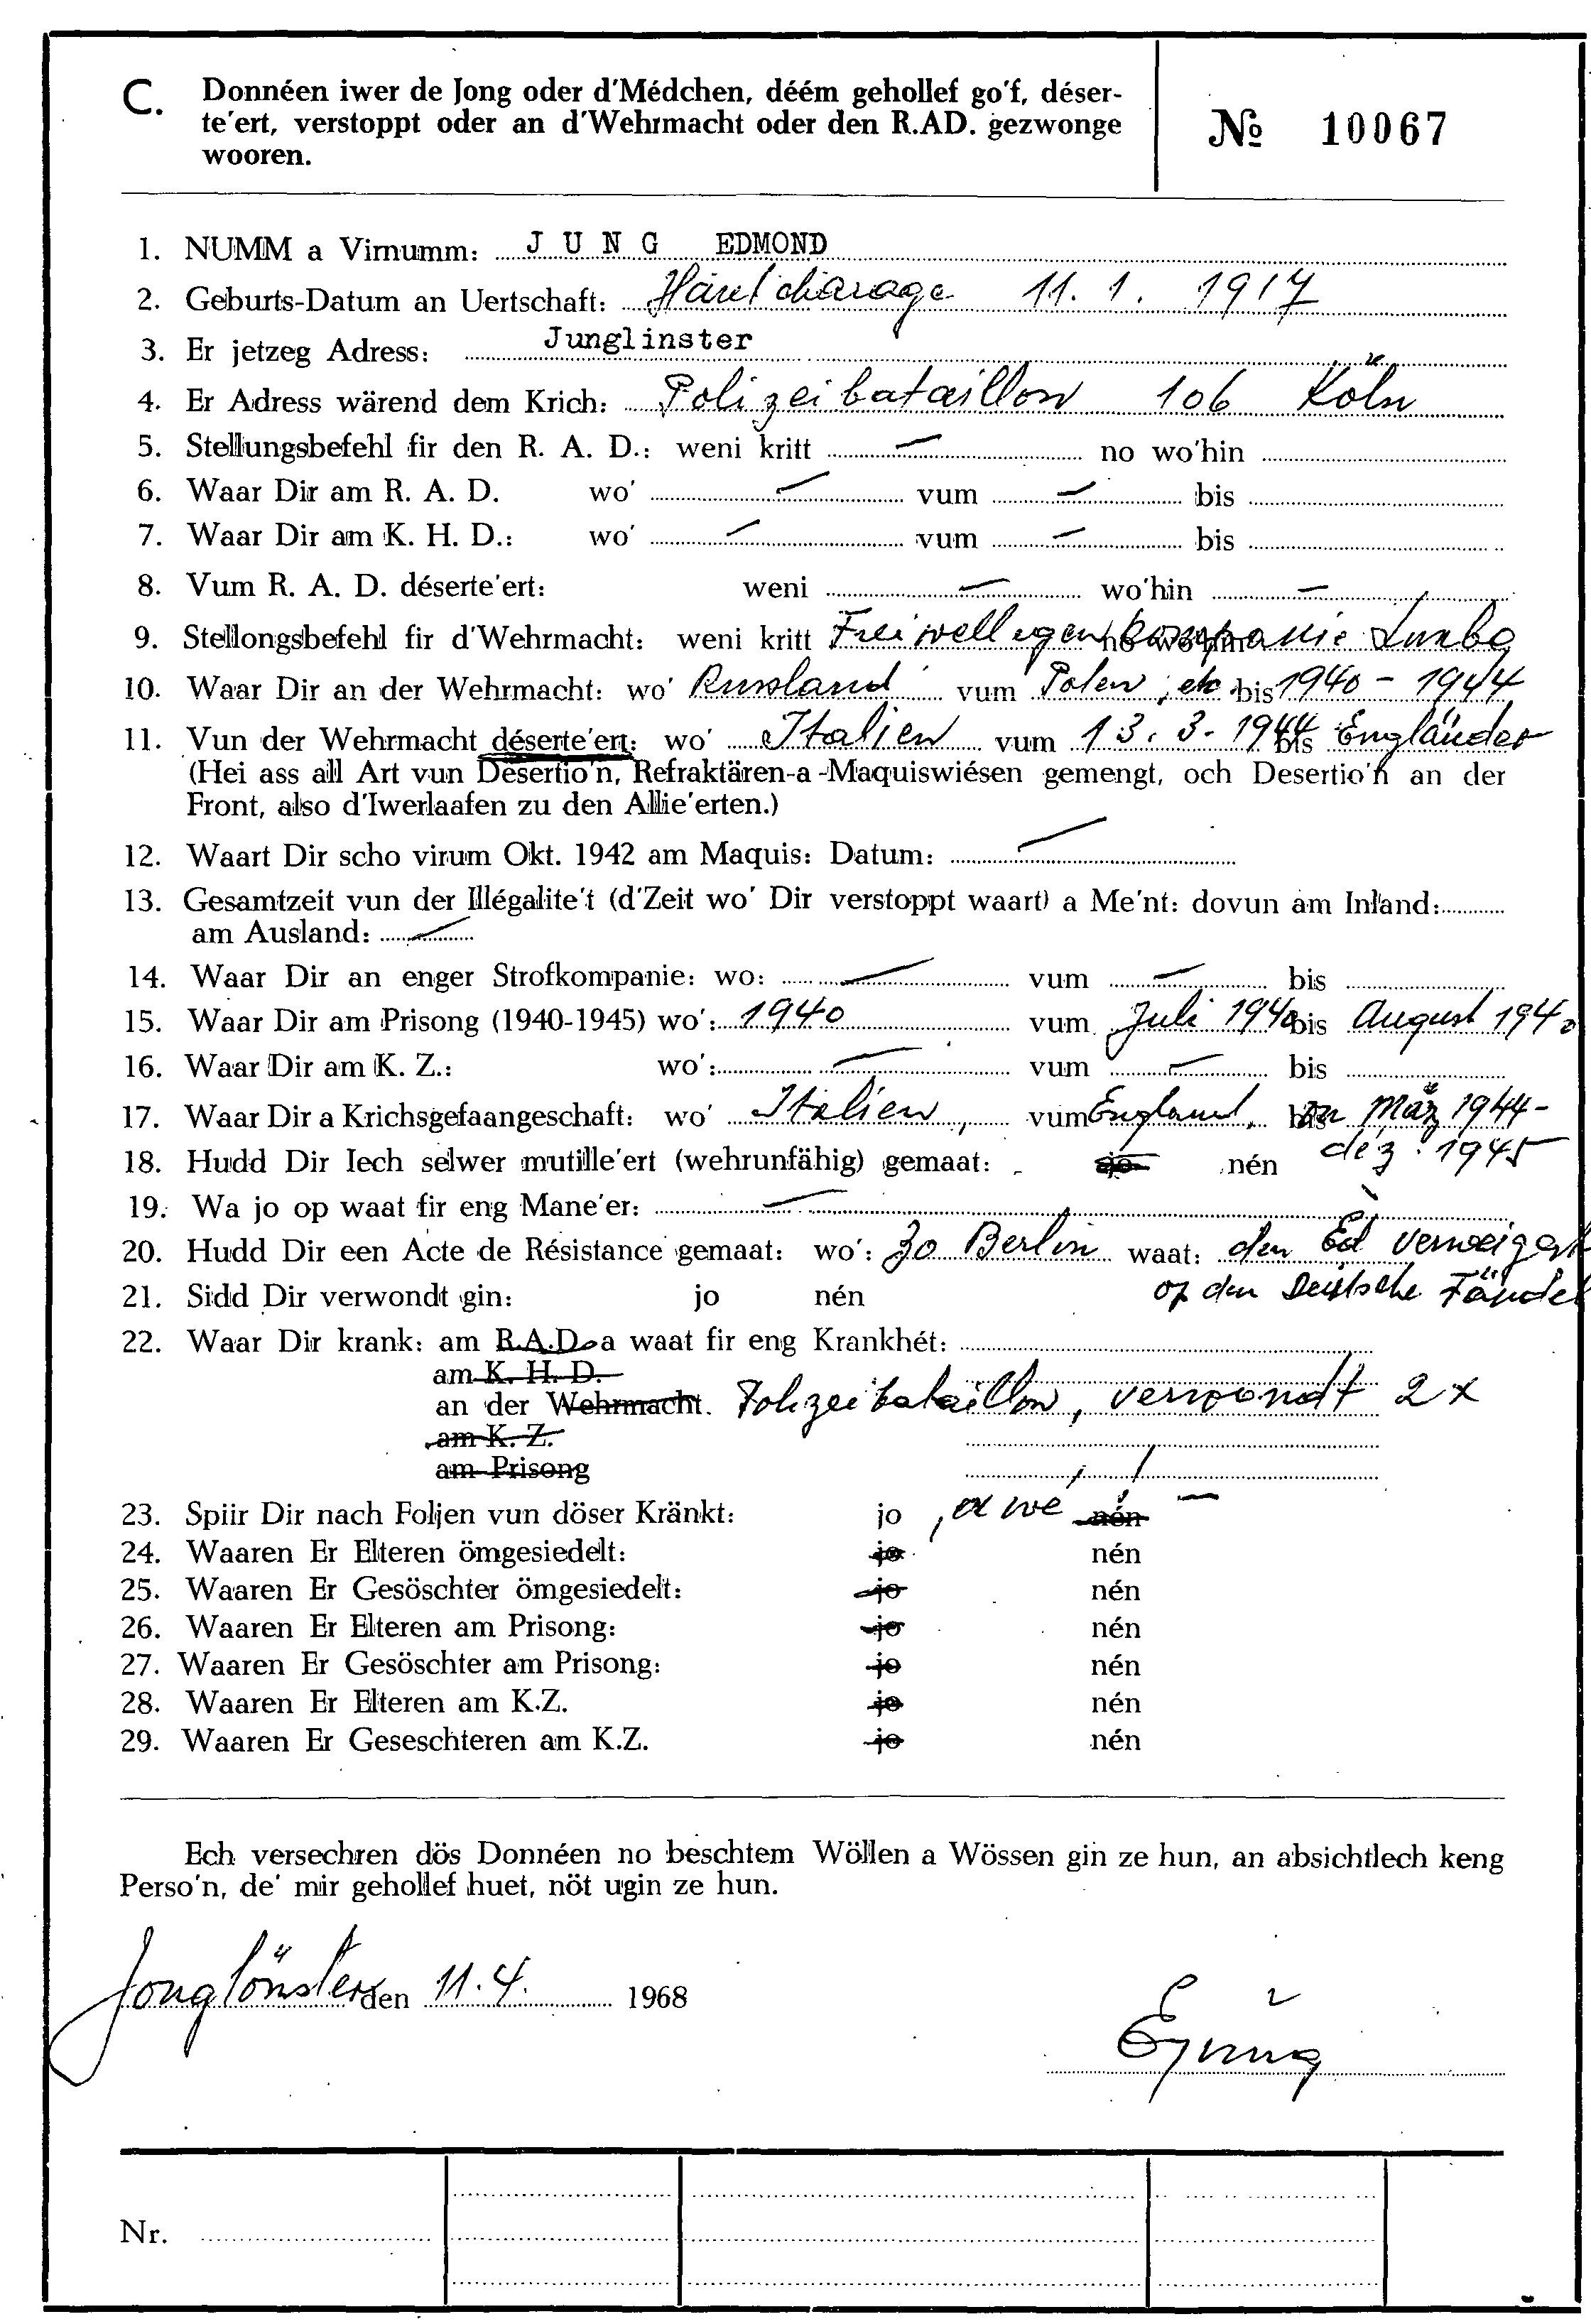 C. Donnéen iwer de Jong oder d'Médchen, déém gehollef go'f, déser-
te'ert, verstoppt oder an d'Wehrmacht oder den R.AD. gezwonge
wooren.
№ 10067
1. NUMM a Virnumm: JUNG EDMOND
2. Geburts-Datum an Uertschaft: 11. 1. 1917
3. Er jetzeg Adress: Junglinster
4. Er Adress wärend dem Krich: Polizeibataillon 106 Köln
5. Stellungsbefehl fir den R. A. D.: weni kritt — no wo'hin
6. Waar Dir am R. A. D. wo' — vum — bis
7. Waar Dir am K. H. D.: wo' — vum — bis
8. Vum R. A. D. déserte'ert: weni — wo'hin —
9. Stellongsbefehl fir d'Wehrmacht: weni kritt Freiwellegenkompanie no wo'hin Luxbg
10. Waar Dir an der Wehrmacht: wo' Russland vum Polen, etc bis 1940 - 1944
11. Vun der Wehrmacht déserte'ert: wo' Italien vum 13. 3. 1944 bis Engländer
(Hei ass all Art vun Desertio'n, Refraktären-a -Maquiswiésen gemengt, och Desertio'n an der
Front, also d'Iwerlaafen zu den Allie'erten.)
12. Waart Dir scho virum Okt. 1942 am Maquis: Datum: —
13. Gesamtzeit vun der Illégalite't (d'Zeit wo' Dir verstoppt waart) a Me'nt: dovun am Inland:
am Ausland: —
14. Waar Dir an enger Strofkompanie: wo: — vum — bis
15. Waar Dir am Prisong (1940-1945) wo': 1940 vum Juli 1940 bis August 1940
16. Waar Dir am K. Z.: wo': — vum — bis
17. Waar Dir a Krichsgefaangeschaft: wo' Italien, vum England, bis März 1944 -
18. Hudd Dir Iech selwer mutille'ert (wehrunfähig) gemaat: jo nén déz. 1945
19. Wa jo op waat fir eng Mane'er: —
20. Hudd Dir een Acte de Résistance gemaat: wo': zo Berlin waat: den Ed verweigert
21. Sidd Dir verwondt gin: jo nén op den Deitsche Fändel
22. Waar Dir krank: am R.A.D. a waat fir eng Krankhét:
am K. H. D.
an der Wehrmacht. Polizeibataillon, verwondt 2 x
am K. Z.
am Prisong
23. Spiir Dir nach Foljen vun döser Kränkt: jo, nén —
24. Waaren Er Elteren ömgesiedelt: jo nén
25. Waaren Er Gesöschter ömgesiedelt: jo nén
26. Waaren Er Elteren am Prisong: jo nén
27. Waaren Er Gesöschter am Prisong: jo nén
28. Waaren Er Elteren am K.Z. jo nén
29. Waaren Er Geseschteren am K.Z. jo nén
Ech versechren dös Donnéen no beschtem Wöllen a Wössen gin ze hun, an absichtlech keng
Perso'n, de' mir gehollef huet, nöt ugin ze hun.
Jonglönster den 11. 4. 1968
EJung
Nr.